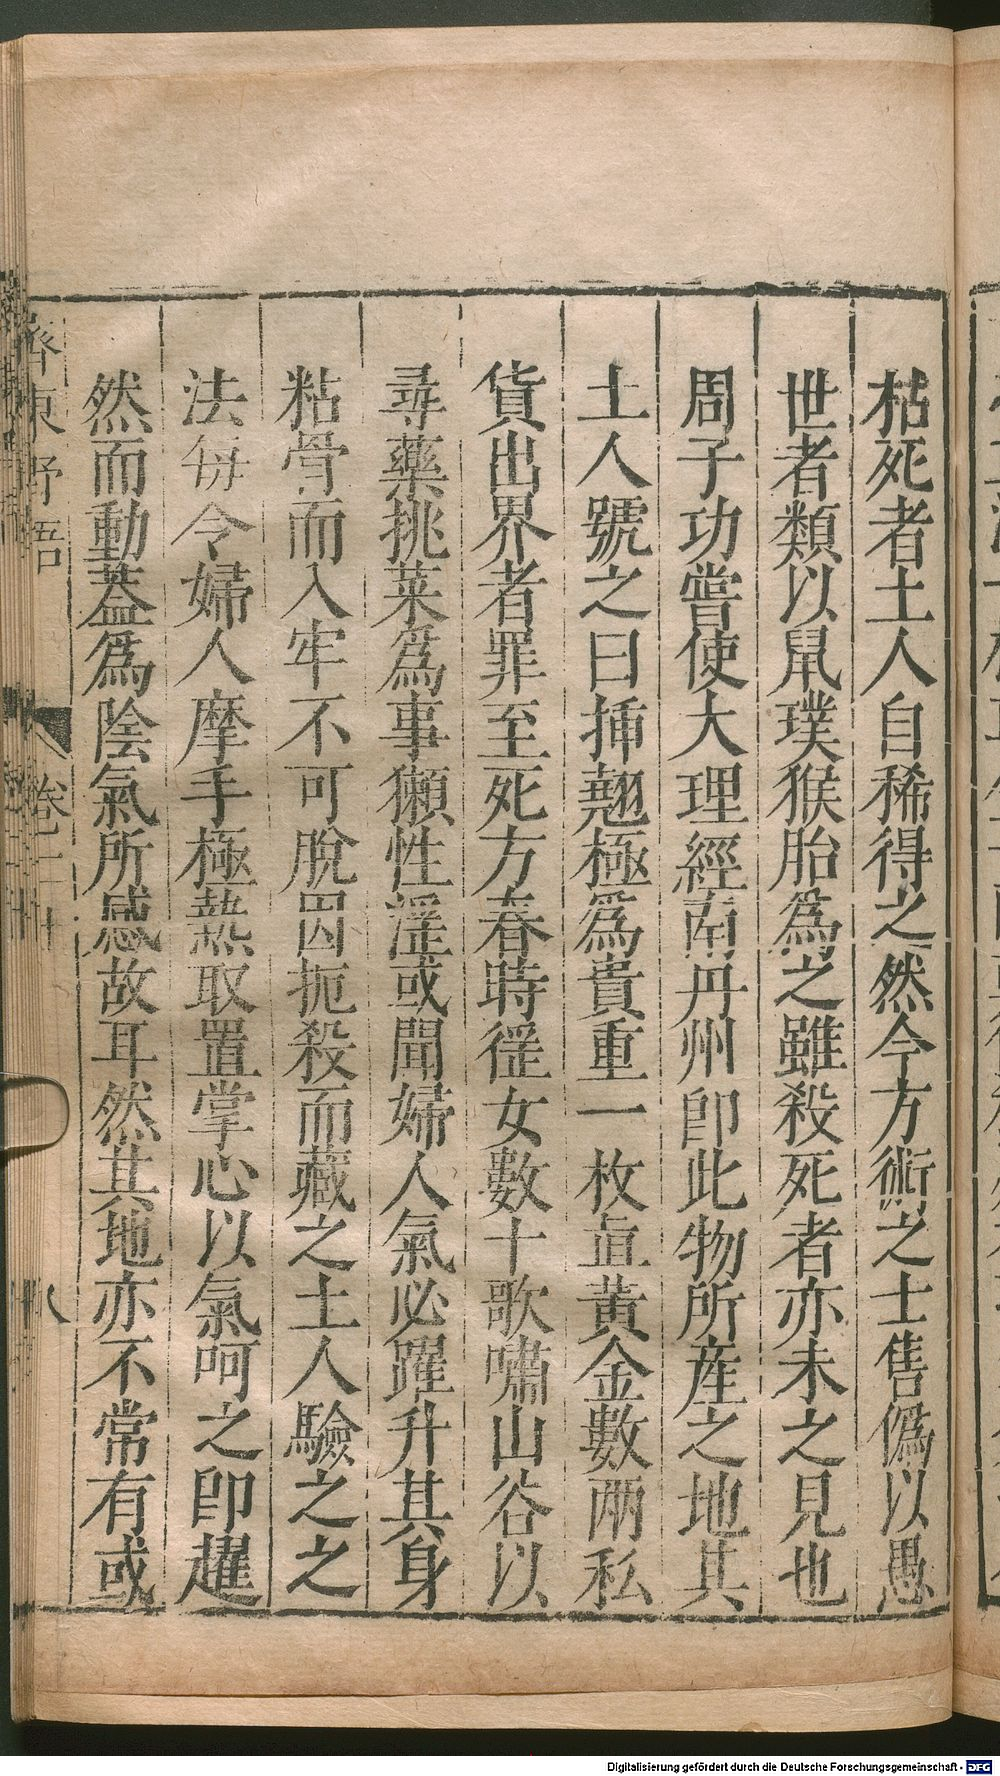 枯死者土人自稀得之然今方術之士售僞以愚
世者類以鼠璞猴胎爲之雖殺死者亦未之見也
周子功嘗使大理經南丹州卽此物所産之地其
土人號之曰揷翹極爲貴重一枚直黃金數兩私
貨出界者罪至死方春時猺女數十歌嘯山谷以
尋藥挑菜爲事獺性淫或聞婦人氣必躍升其身
粘骨而入牢不可脫因扼殺而藏之土人驗之之
法每令婦人摩手極熱取置掌心以氣呵之卽趯
然而動蓋爲陰氣所感故耳然其地亦不常有或
齊東野語
卷二十
八
Digitalisierung gefördert durch die Deutsche Forschungsgemeinschaft - DFG